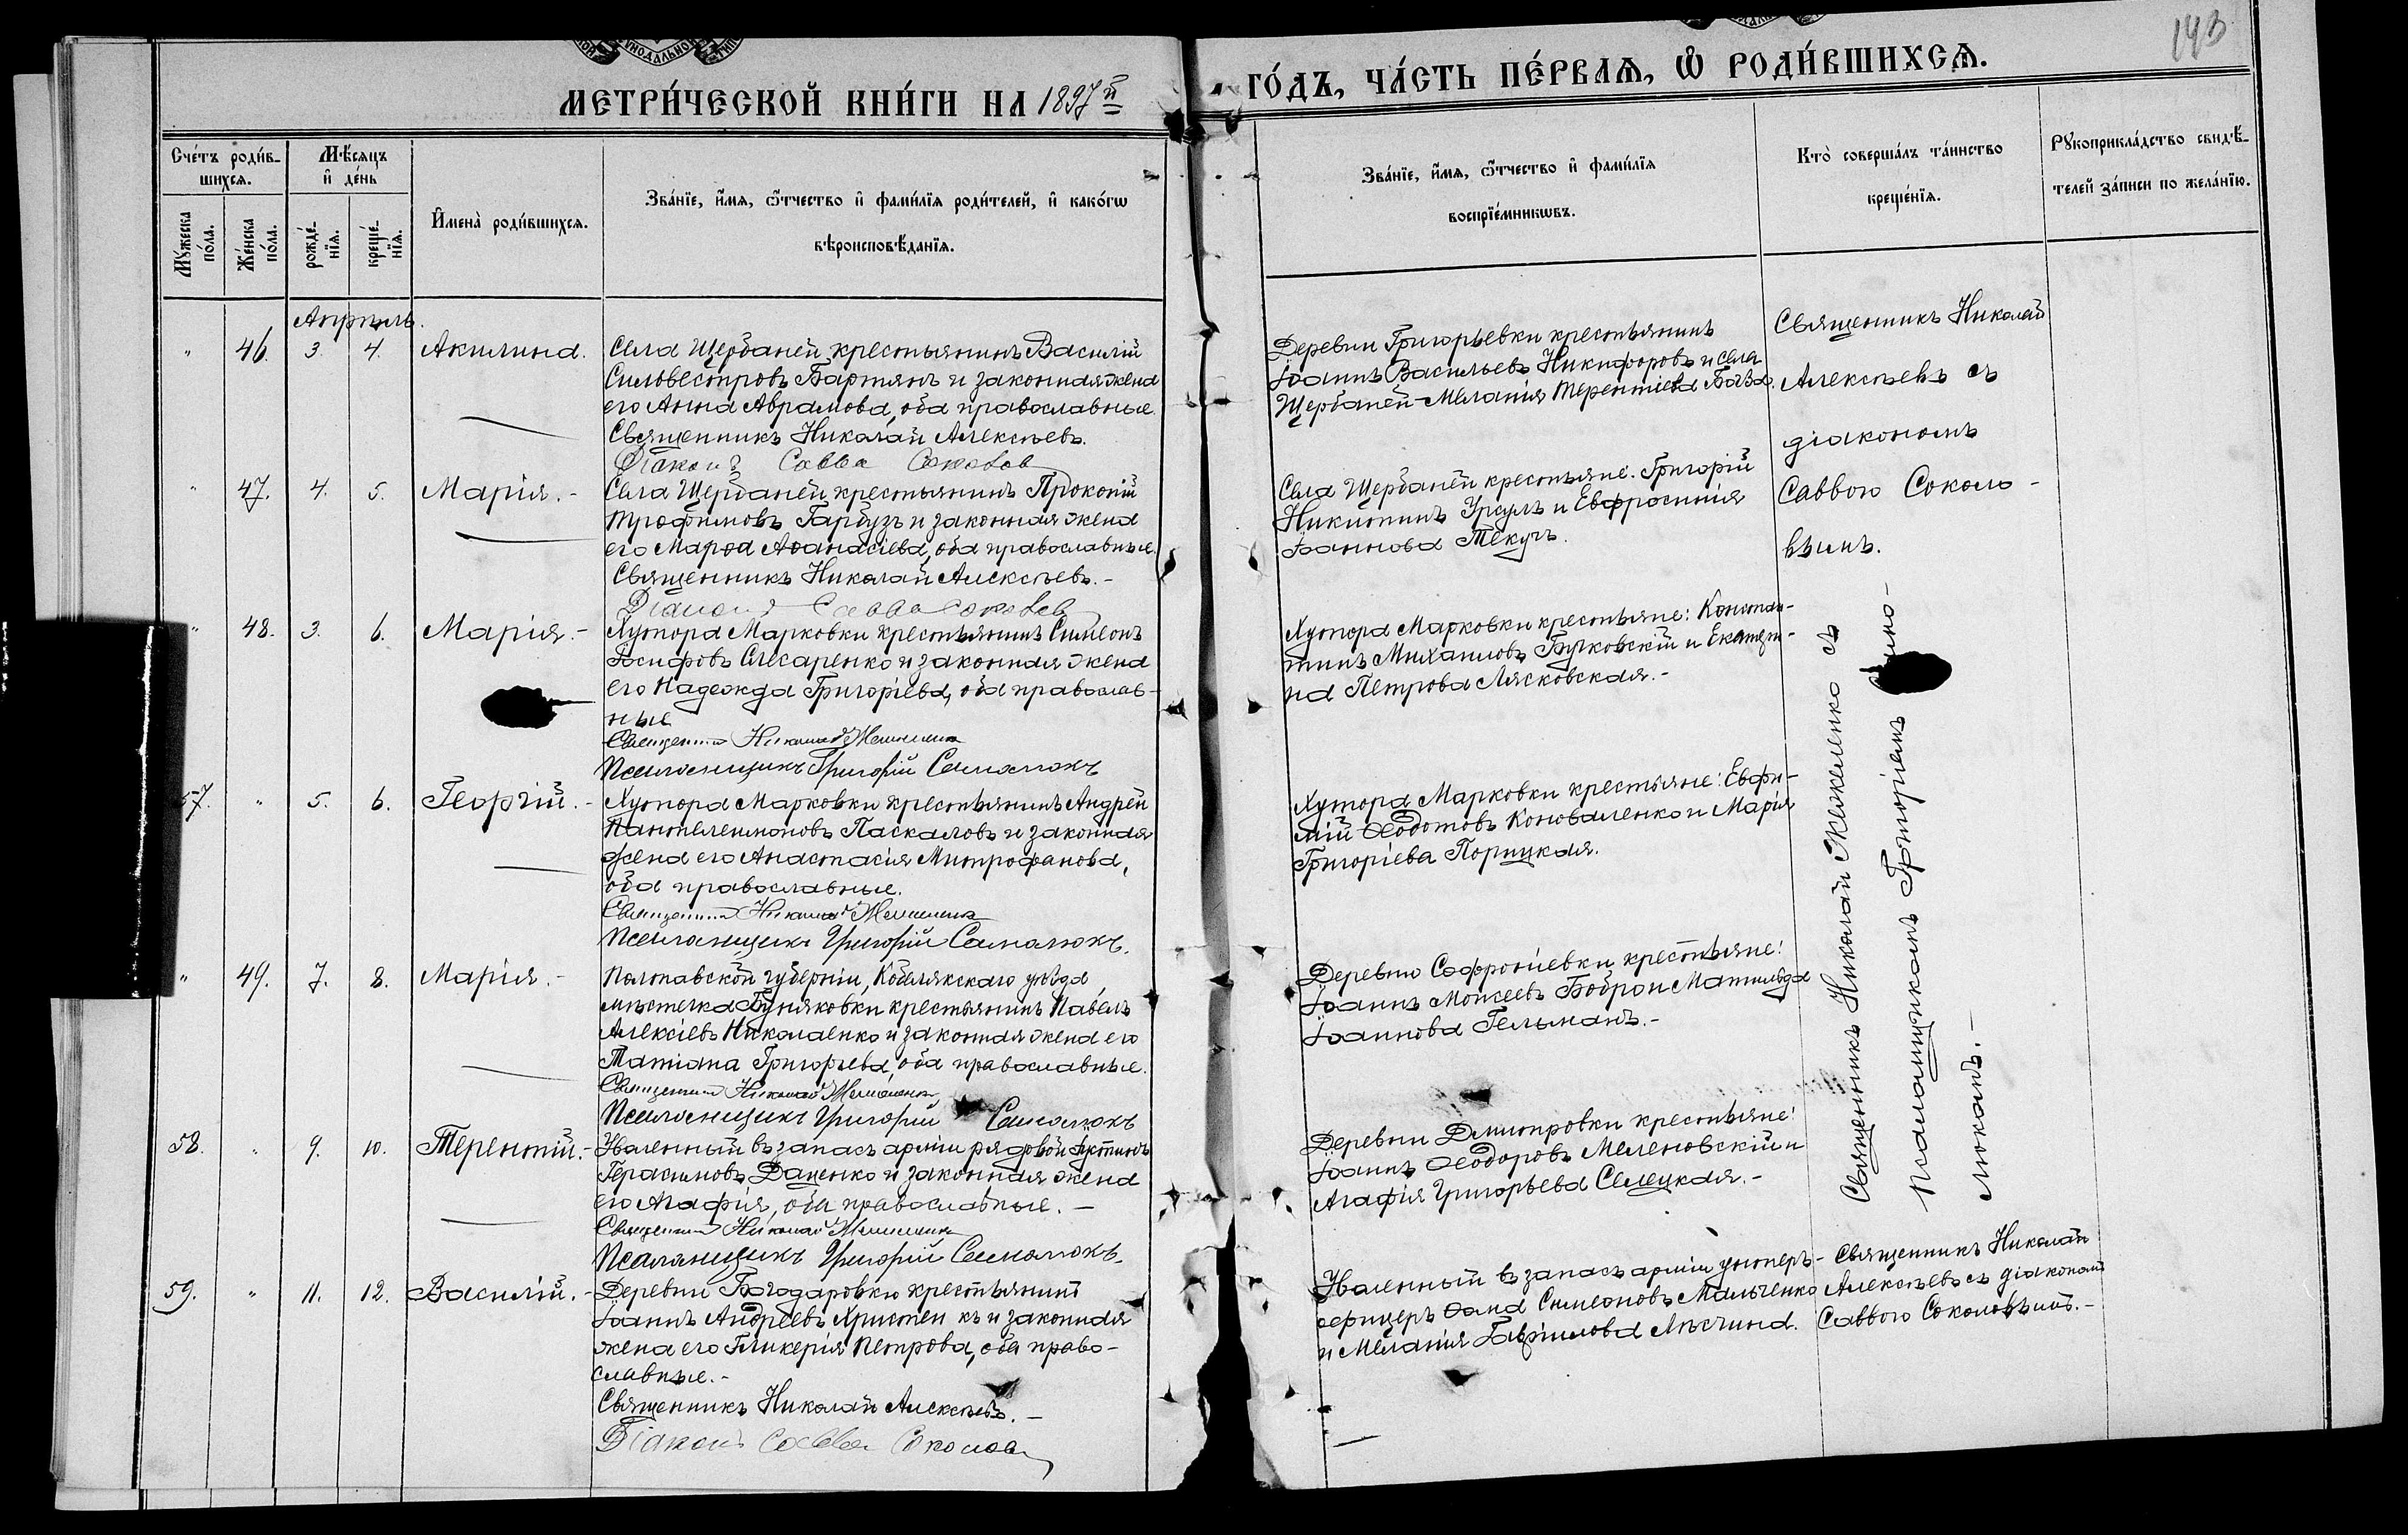 143
МЕТРИ́ЧЕСКОЙ КНИ́ГИ НА 1897й
ГО́ДЪ, ЧА́СТЬ ПЕ́РВАѦ, Ѡ РОДИ́ВШИХСѦ.
Сче́тъ роди́в-
шихсѧ.
Мѣ́сяцъ
и̂ де́нь
Мꙋжеска
по́ла.
Же́нска
по́ла.
рожде́-
нїѧ.
креще́-
нїѧ.
И̂мена̀ роди́вшихсѧ.
Зва́нїе, и̂́мѧ, ѿтчество и̂ фами́лїѧ роди́телей, и̂ како́гѡ
вѣроисповѣ́данїѧ.
Зва́нїе, и̂́мѧ, ѿтчество и̂ фами́лїѧ
воспрїе́мникѡвъ.
Кто̀ соверша́лъ та́инство
креще́нїѧ.
Рꙋкоприкла́дство свидѣ́-
телей за́писи по жела́нїю.
Апрѣль.
" 46. 3. 4. Акилина.
Села Щербаней крестьянинъ Василій
Сильвестровъ Бартянъ и законная жена
его Анна Аврамова, оба православные.
Священникъ Николай Алексѣевъ.
Діаконъ Савва Соколов
Деревни Григорьевки крестьянинъ
Іоаннъ Васильевъ Никифоровъ и села
Щербаней Меланія Терентіева
Священникъ Николай
Алексѣевъ съ
діакономъ
Саввою Соколо-
вымъ.
" 47. 4. 5. Марія.-
Села Щербаней крестьянинъ Прокопій
Трофимовъ Гарбузъ и законная жена
его Марѳа Аѳанасіева, оба православные.
Священникъ Николай Алексѣевъ.-
Діаконъ Савва Соколов
Села Щербаней крестьяне: Григорій
Никитинъ Урсулъ и Евфросинія
Іоаннова Текучъ.
" 48. 3. 6. Марія.-
Хутора Марковки крестьянинъ Симеонъ
Іосифовъ Слесаренко и законная жена
его Надежда Григоріева, оба православ-
ные
Священникъ Николай
Псаломщикъ Григорій
Хутора Марковки крестьяне: Констан-
тинъ Михаиловъ Бучковскій и Екатери-
на Петрова Лясковская.-
Священникъ Николай съ
Псаломщикомъ Григоріемъ
люкомъ.-
57. " 5. 6. Георгій.-
Хутора Марковки крестьянинъ Андрей
Пантелеимоновъ Паскаловъ и законная
жена его Анастасія Митрофанова,
оба православные.
Священникъ Николай
Псаломщикъ Григорій
Хутора Марковки крестьяне: Евфи-
мій Ѳеодотовъ Коноваленко и Марія
Григоріева Порицкая.
" 49. 7. 8. Марія.-
Полтавской губерніи, Кобелякскаго уѣзда
мѣстечка крестьянинъ Павелъ
Алексіевъ Николаенко и законная жена его
Татіана Григорьева, оба православные.
Священникъ Николай
Псаломщикъ Григорій
Деревни Софроніевки крестьяне:
Іоаннъ Моисеевъ Бобро и Матильда
Іоаннова Гельманъ.-
58. " 9. 10. Терентій.-
Уволенный въ запасъ арміи рядовой Іустинъ
Герасимовъ Даценко и законная жена
его Агафія, оба православные.-
Священникъ Николай
Псаломщикъ Григорій
Деревни Дмитровки крестьяне:
Іоаннъ Ѳеодоровъ Меленовскій и
Агафія Григорьева Селецкая.-
59. " 11. 12. Василій.-
Деревни Богодаровки крестьянинъ
Іоаннъ Андреевъ и законная
жена его Гликерія Петрова, оба право-
славные.-
Священникъ Николай Алексѣевъ.-
Діаконъ Савва Соколов
Уволенный въ запасъ арміи унтеръ-
офицеръ Ѳома Симеоновъ Мальченко
и Меланія Гавриилова
Священникъ Николай
Алексѣевъ съ діакономъ
Саввою Соколовымъ.-